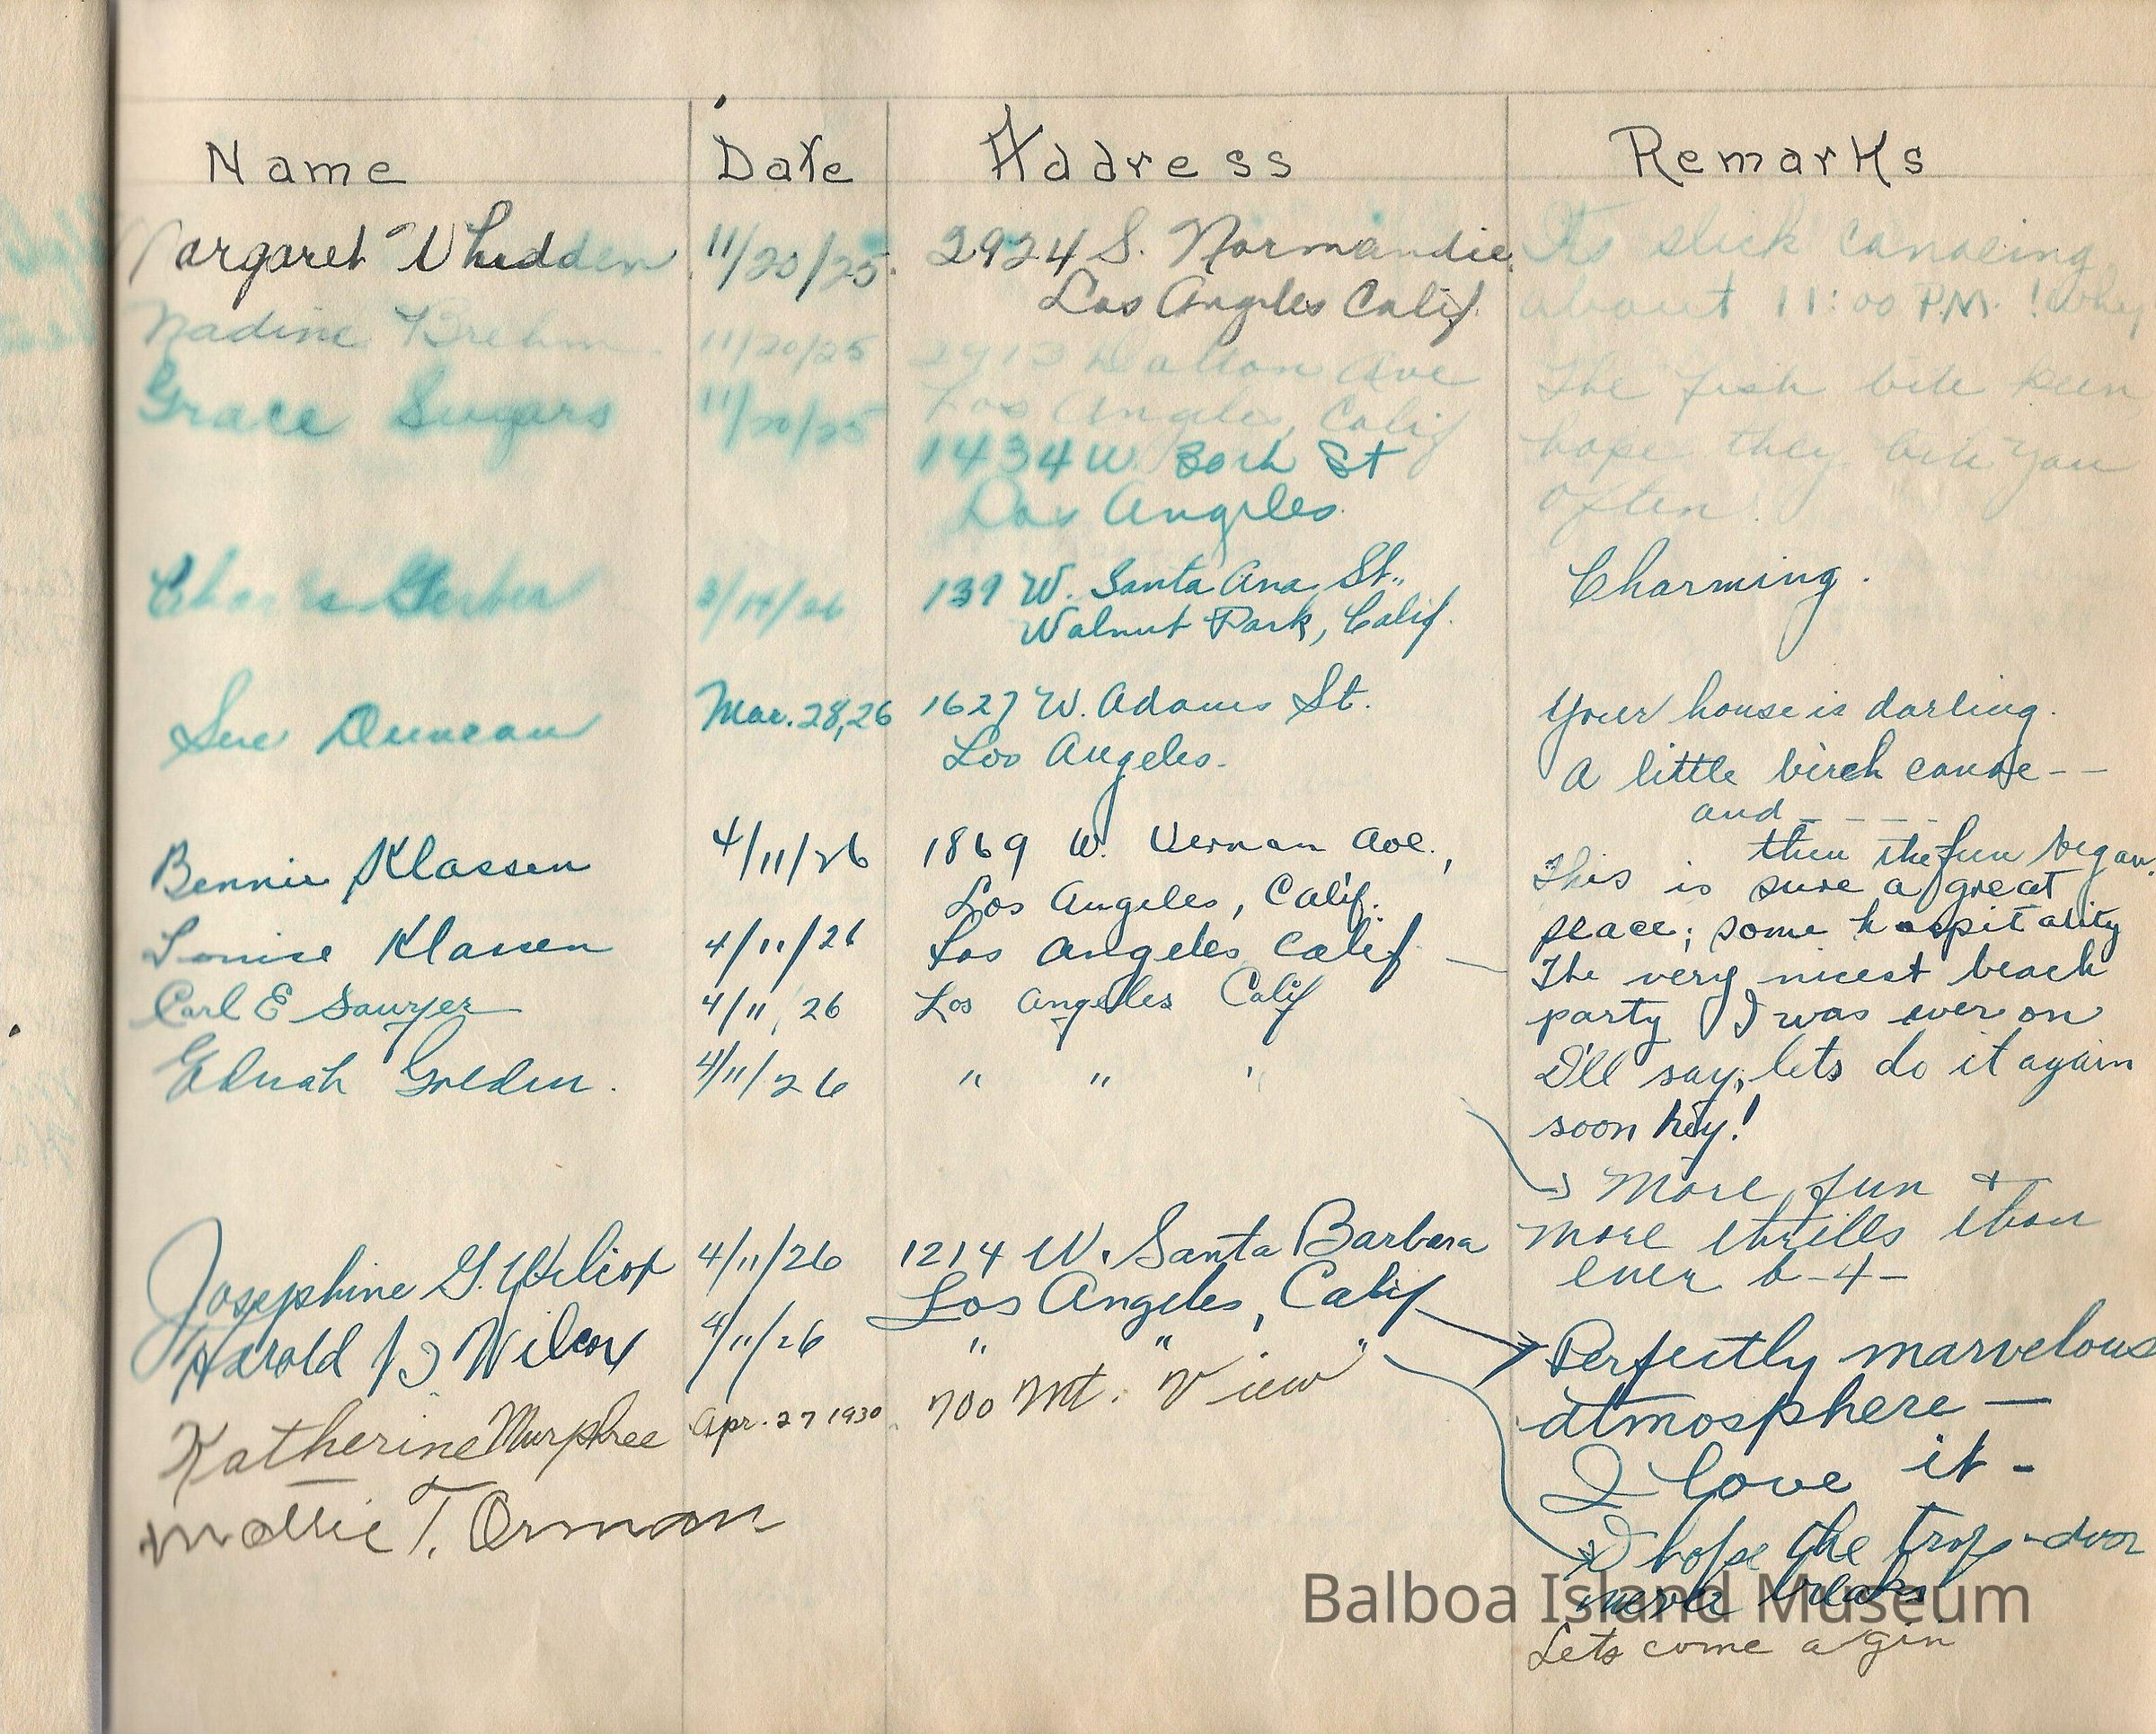 Name Date Address Remarks
Margaret Whidden 11/20/25. 2924 S. Normandie Its slick canoeing
Los Angeles Calif. about 11:00 P.M. ! Why
Nadine Brehm 11/20/25 2913 Dalton Ave
Los Angeles, Calif The fish bite keen,
Grace Sugars 11/20/25 1434 W St hope they bite you
Los Angeles. often.
Gerber 139 W. Santa Ana St., Charming.
Walnut Park, Calif.
Sue Duncan Mar. 28, 26 1627 W. Adams St. Your house is darling.
Los Angeles. A little birch canoe--
and ----
then the fun began.
Bennie Klassen 4/11/26 1869 W. Vernon Ave., This is sure a great
Los Angeles, Calif. place; some hospitality
Louise Klassen 4/11/26 Los Angeles Calif — The very nicest beach
party I was ever on
Carl E Sawyer 4/11/26 Los Angeles Calif I'll say, lets do it again
soon hey!
Ednah Golden. 4/11/26 " " " → More fun +
more thrills than
ever b-4-
Josephine G. 4/11/26 1214 W. Santa Barbara
Los Angeles, Calif → Perfectly marvelous
atmosphere —
I love it -
Harold B Wilcox 4/11/26 " " " → I hope the trap-door
never breaks.
Katherine Murphree Apr. 27 1930 700 Mt. View Lets come agin
Mollie T. Orman
Balboa Island Museum